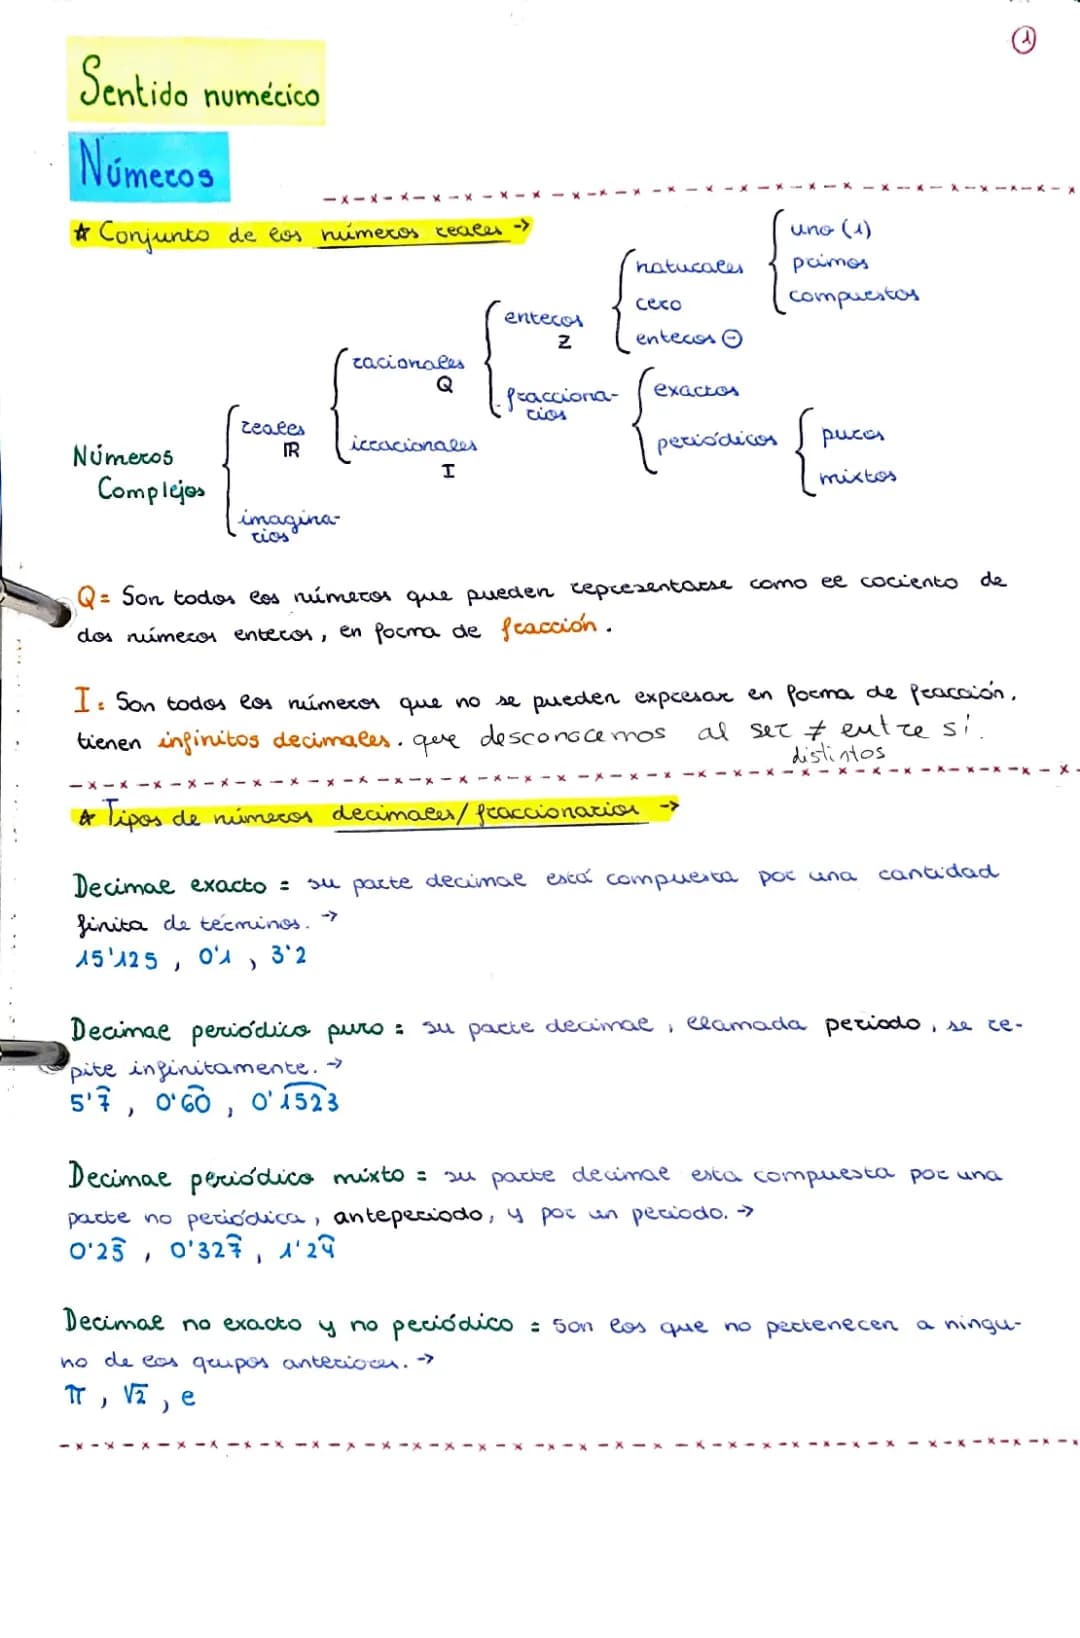 ①
Sentido numérico
Números
☆ Conjunto de los números reales →
uno (1)
naturales
primos
compuestos
cero
enteros
Z
enteros ⊖
racionales
Q
fracciona-
rios
exactos
reales
ℝ
irracionales
I
periódicos
puros
mixtos
Números
Complejos
imagina-
rios
Q= Son todos los números que pueden representarse como el cociento de
dos números enteros, en forma de fracción.
I: Son todos los números que no se pueden expresar en forma de fracción,
tienen infinitos decimales. que desconocemos al ser ≠ entre sí.
distintos
☆ Tipos de números decimales/fraccionarios →
Decimal exacto = su parte decimal está compuesta por una cantidad
finita de términos. →
15'125, 0'1, 3'2
Decimal periódico puro = su parte decimal, llamada periodo, se re-
pite infinitamente. →
5'7̂, 0'6͡0, 0'1͡5͡2͡3
Decimal periódico mixto = su parte decimal esta compuesta por una
parte no periódica, anteperiodo, y por un periodo. →
0'25̂, 0'327̂, 1'24̂
Decimal no exacto y no periódico = son los que no pertenecen a ningu-
no de los grupos anteriores. →
π, √2, e